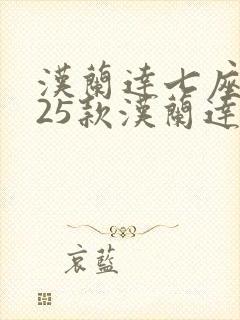 漢蘭達七座
25款漢蘭達
哀藍